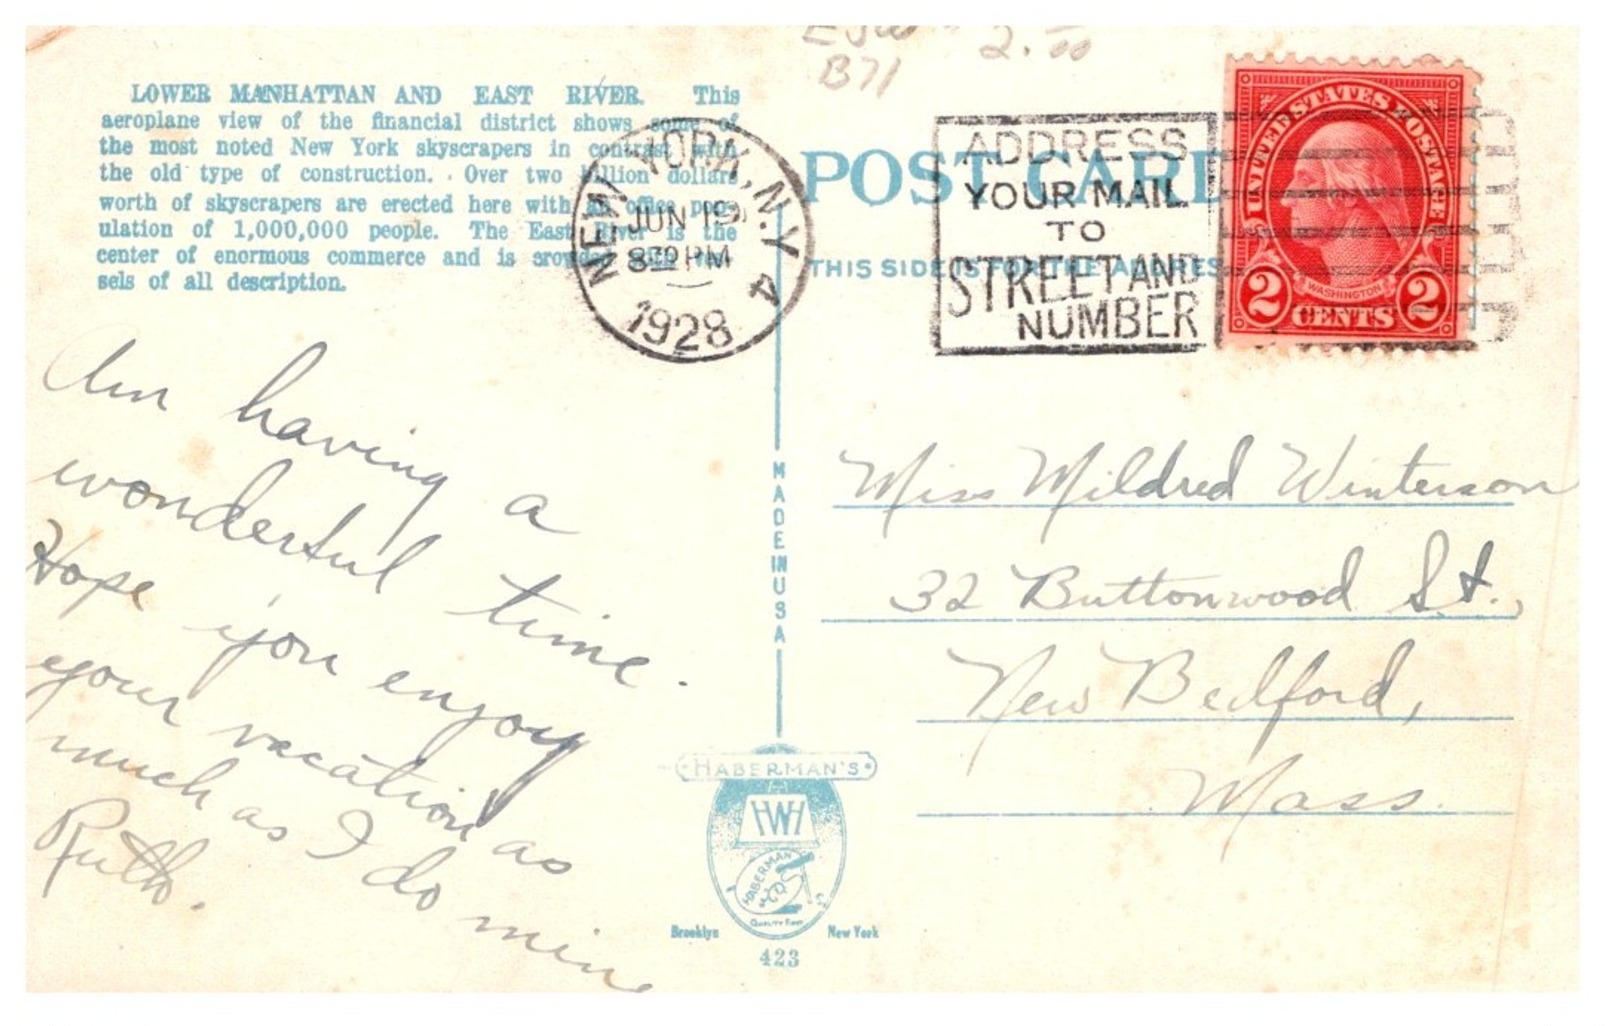 EJW - 2.00
B71
LOWER MANHATTAN AND EAST RIVER. This
aeroplane view of the financial district shows some of
the most noted New York skyscrapers in contrast with
the old type of construction. Over two billion dollars
worth of skyscrapers are erected here with an office pop-
ulation of 1,000,000 people. The East River is the
center of enormous commerce and is crowded with ves-
sels of all description.
NEW YORK, N.Y. 4
JUN 19
8 30 PM
1928
POST CARD
THIS SIDE IS FOR THE ADDRESS
ADDRESS
YOUR MAIL
TO
STREET AND
NUMBER
UNITED STATES POSTAGE
WASHINGTON
2 CENTS 2
Am having a
wonderful time.
Hope you enjoy
your vacation as
much as I do mine
Ruth.
MADE IN USA
Miss Mildred Winterson
32 Buttonwood St.,
New Bedford,
Mass.
HABERMAN'S
HWH
HABERMAN
Brooklyn New York
423